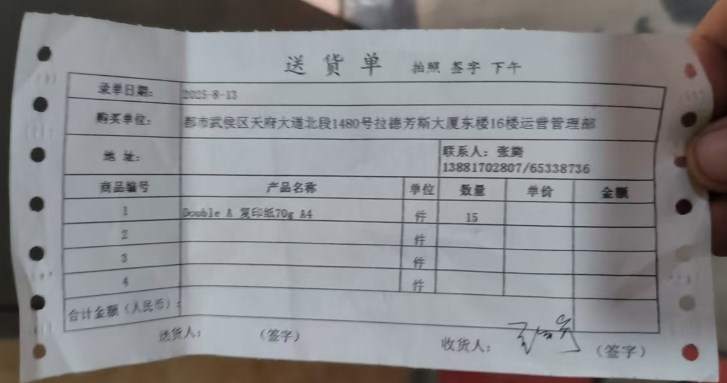 送货单 拍照 签字 下午
录单日期: 2025-8-13
购买单位: 都市武侯区天府大道北段1480号拉德芳斯大厦东楼16楼运营管理部
地 址: 联系人: 张
13881702807/65338736
商品编号 产品名称 单位 数量 单价 金额
1 Double A 复印纸70g A4 件 15
2 件
3 件
4 件
合计金额(人民币):
送货人: (签字) 收货人: (签字)